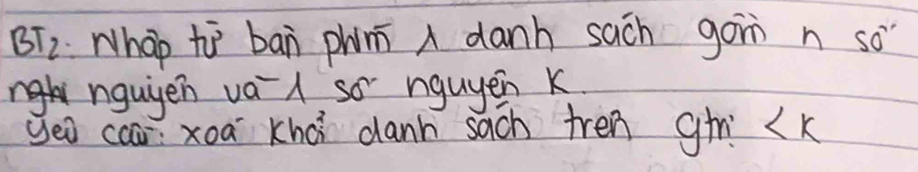 BT2: Nhập từ bàn phím 1 danh sách gồm n số
nguyên và 1 số nguyên K.
yêu cầu: xoá khỏi danh sách trên gtrị < K